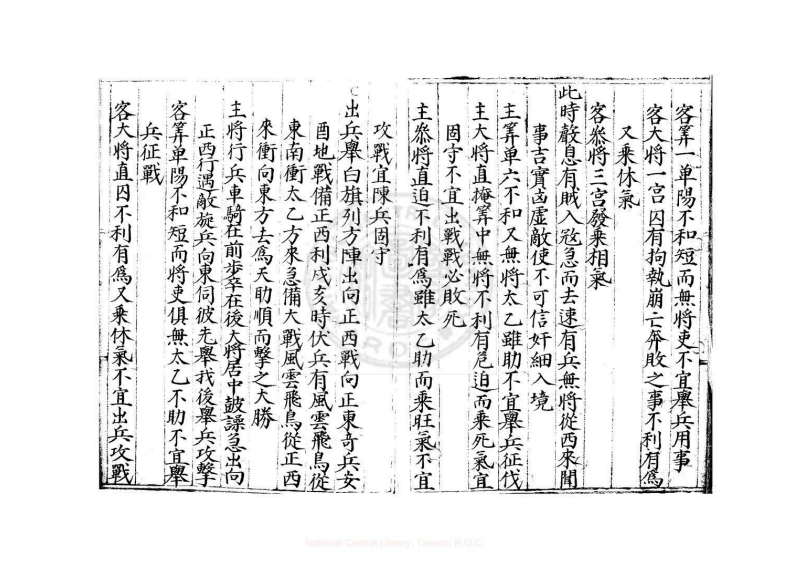 客筭一單陽不和短而無將吏不宜舉兵用事
客大將一宮囚有拘執崩亡奔敗之事不利有為
又乘休氣
客叅將三宮發乘相氣
此時嚴息有賊入冦急而去速有兵無將從西來聞
事吉實凶虛敵使不可信奸細入境
主筭单六不和又無將太乙雖助不宜舉兵征伐
主大將直掩筭中無將不利有危迫而乘死氣宜
固守不宜出戰戰必敗死
主叅將直迫不利有為雖太乙助而乘旺氣不宜
攻戰宜陳兵固守
出兵舉白旗列方陣出向正西戰向正東奇兵安
酉地戰備正西利戌亥時伏兵有風雲飛鳥從
東南衝太乙方來急備大戰風雲飛鳥從正西
來衝向東方去為天助順而擊之大勝
主將行兵車騎在前步卒在後大將居中鼓譟急出向
正西行遇敵旋兵向東伺彼先舉我後舉兵攻擊
客筭单陽不和短而將吏俱無太乙不助不宜舉
兵征戰
客大將直囚不利有為又乘休氣不宜出兵攻戰
National Central Library, Taiwan, R.O.C.